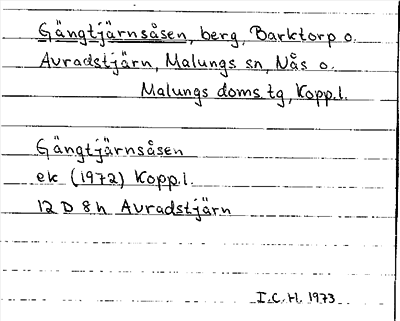 Gängtjärnsåsen, berg, Barktorp o.
Avradstjärn, Malungs sn, Nås o.
Malungs doms.tg, Kopp.l.
Gängtjärnsåsen
ek (1972) Kopp.l.
12 D 8 h Avradstjärn
I.C.H. 1973